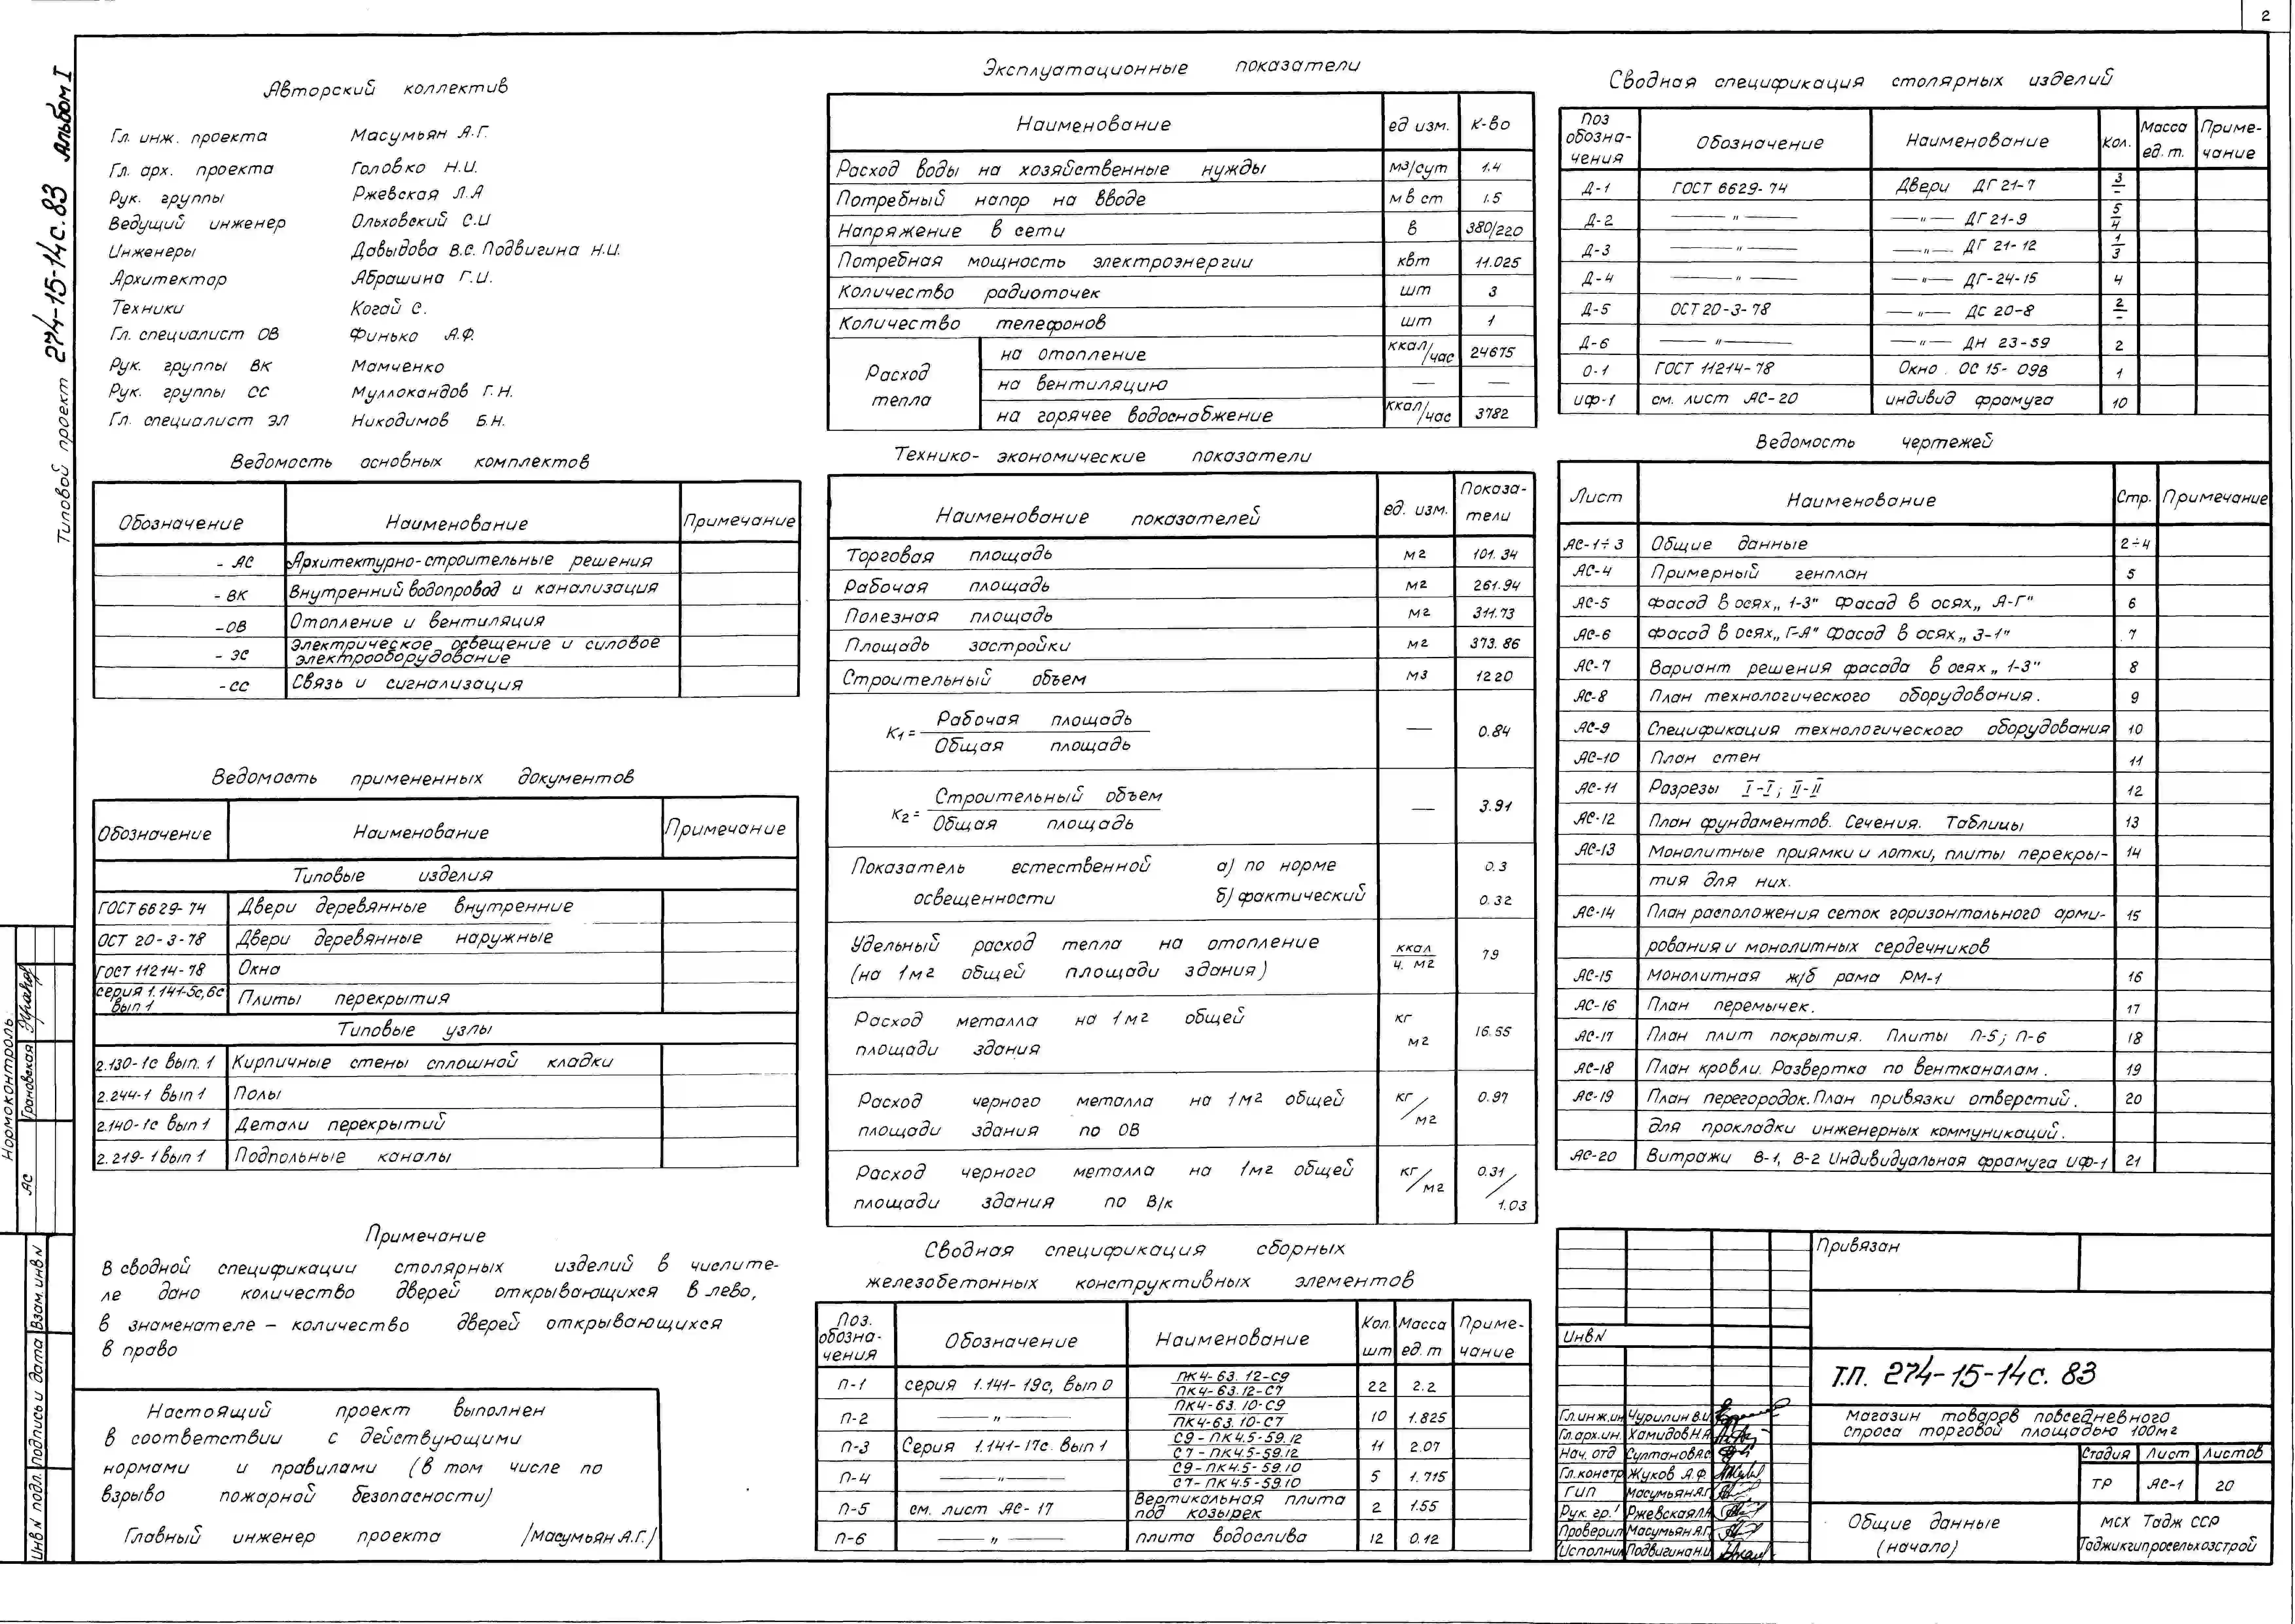 2
Типовой проект 274-15-14с.83 Альбом I
Авторский коллектив
Гл. инж. проекта Масумьян А.Г.
Гл. арх. проекта Головко Н.И.
Рук. группы Ржевская Л.А
Ведущий инженер Ольховский С.И
Инженеры Давыдова В.С. Подвигина Н.И.
Архитектор Абрашина Г.И.
Техники Когай С.
Гл. специалист ОВ Финько А.Ф.
Рук. группы ВК Мамченко
Рук. группы СС Муллокандов Г.Н.
Гл. специалист ЭЛ Никодимов Б.Н.
Ведомость основных комплектов
Обозначение Наименование Примечание
- АС Архитектурно-строительные решения
- ВК Внутренний водопровод и канализация
-ОВ Отопление и вентиляция
- ЭС Электрическое освещение и силовое
электрооборудование
-СС Связь и сигнализация
Ведомость примененных документов
Обозначение Наименование Примечание
Типовые изделия
ГОСТ 6629-74 Двери деревянные внутренние
ОСТ 20-3-78 Двери деревянные наружные
ГОСТ 11214-78 Окна
серия 1.141-5с,6с
вып 1 Плиты перекрытия
Типовые узлы
2.130-1с вып. 1 Кирпичные стены сплошной кладки
2.244-1 вып 1 Полы
2.140-1с вып 1 Детали перекрытий
2.219-1 вып 1 Подпольные каналы
Примечание
В сводной спецификации столярных изделий в числите-
ле дано количество дверей открывающихся в лево,
в знаменателе - количество дверей открывающихся
в право
Настоящий проект выполнен
в соответствии с действующими
нормами и правилами (в том числе по
взрыво пожарной безопасности)
Главный инженер проекта /Масумьян А.Г./
Нормоконтроль
АС Грановская
Инв N подл. Подпись и дата Взам. инв N
Эксплуатационные показатели
Наименование ед изм. К-во
Расход воды на хозяйственные нужды м3/сут 1.4
Потребный напор на вводе м в ст 1.5
Напряжение в сети в 380/220
Потребная мощность электроэнергии квт 11.025
Количество радиоточек шт 3
Количество телефонов шт 1
Расход тепла
на отопление ккал/час 24675
на вентиляцию — —
на горячее водоснабжение ккал/час 3782
Технико-экономические показатели
Наименование показателей ед. изм. Показа-
тели
Торговая площадь м2 101.34
Рабочая площадь м2 261.94
Полезная площадь м2 311.73
Площадь застройки м2 373.86
Строительный объем м3 1220
К1= Рабочая площадь — 0.84
Общая площадь
К2= Строительный объем — 3.91
Общая площадь
Показатель естественной а) по норме 0.3
освещенности б) фактический 0.32
Удельный расход тепла на отопление ккал 79
(на 1м2 общей площади здания) ч. м2
Расход металла на 1м2 общей кг 16.55
площади здания м2
Расход черного металла на 1м2 общей кг/ 0.97
площади здания по ОВ м2
Расход черного металла на 1м2 общей кг/ 0.31/
площади здания по В/к м2 1.03
Сводная спецификация сборных
железобетонных конструктивных элементов
Поз. обозна-чения Обозначение Наименование Кол. шт Масса ед. т Приме-чание
П-1 серия 1.141-19с, вып 0 ПК4-63.12-С9 22 2.2
ПК4-63.12-С7
П-2 —"— ПК4-63.10-С9 10 1.825
ПК4-63.10-С7
П-3 Серия 1.141-17с. вып 1 С9-ПК4.5-59.12 11 2.07
С7-ПК4.5-59.12
П-4 —"— С9-ПК4.5-59.10 5 1.715
С7-ПК4.5-59.10
П-5 см. лист АС-17 Вертикальная плита 2 1.55
под козырек
П-6 —"— плита водослива 12 0.12
Сводная спецификация столярных изделий
Поз обозна-чения Обозначение Наименование Кол. Масса ед. т. Приме-чание
Д-1 ГОСТ 6629-74 Двери ДГ 21-7 3/-
Д-2 —"— —"— ДГ 21-9 5/4
Д-3 —"— —"— ДГ 21-12 1/3
Д-4 —"— —"— ДГ-24-15 4
Д-5 ОСТ 20-3-78 —"— ДС 20-8 2/-
Д-6 —"— —"— ДН 23-59 2
О-1 ГОСТ 11214-78 Окно. ОС 15-09В 1
ИФ-1 см. лист АС-20 индивид фрамуга 10
Ведомость чертежей
Лист Наименование Стр. Примечание
АС-1÷3 Общие данные 2÷4
АС-4 Примерный генплан 5
АС-5 Фасад в осях „1-3" Фасад в осях „А-Г" 6
АС-6 Фасад в осях „Г-А" Фасад в осях „3-1" 7
АС-7 Вариант решения фасада в осях „1-3" 8
АС-8 План технологического оборудования. 9
АС-9 Спецификация технологического оборудования 10
АС-10 План стен 11
АС-11 Разрезы I-I; II-II 12
АС-12 План фундаментов. Сечения. Таблицы 13
АС-13 Монолитные приямки и лотки, плиты перекры- 14
тия для них.
АС-14 План расположения сеток горизонтального арми- 15
рования и монолитных сердечников
АС-15 Монолитная ж/б рама РМ-1 16
АС-16 План перемычек. 17
АС-17 План плит покрытия. Плиты П-5; П-6 18
АС-18 План кровли. Развертка по вентканалам. 19
АС-19 План перегородок. План привязки отверстий. 20
для прокладки инженерных коммуникаций.
АС-20 Витражи В-1, В-2 Индивидуальная фрамуга ИФ-1 21
Привязан
Инв N
Т.П. 274-15-14с. 83
Гл.инж.ин Чурилин В.И.
Гл.арх.ин. Хамидов Н.Я.
Нач. отд Султанов А.С.
Гл.констр Жуков А.Ф.
ГИП Масумьян А.Г.
Рук. гр. Ржевская Л.А
Проверил Масумьян А.Г.
Исполнил Подвигина Н.И.
Магазин товаров повседневного
спроса торговой площадью 100м2
Стадия Лист Листов
ТР АС-1 20
Общие данные
(начало)
МСХ Тадж ССР
Таджикгипросельхозстрой